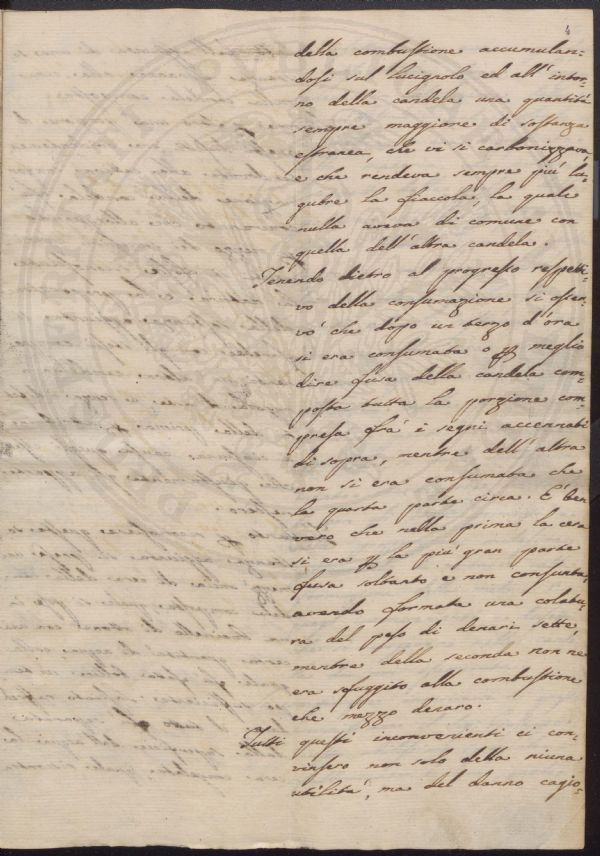 4
della combustione accumulan=
dosi sul lucignolo ed all'intor=
no della candela una quantità
sempre maggiore di sostanza
estranea, che vi si carbonizzava,
e che rendeva sempre più lu=
gubre la fiaccola, la quale
nulla aveva di comune con
quella dell'altra candela.
Tenendo dietro al progresso respetti=
vo della consumazione si osser=
vò che dopo un terzo d'ora
si era consumata o p meglio
dire fusa della candela com=
posta tutta la porzione com=
presa frà i segni accennati
di sopra, mentre dell'altra
non si era consumata che
la quarta parte circa. E' ben
vero che nella prima la cera
si era p la più gran parte
fusa soltanto e non consunta,
avendo formata una colatu=
ra del peso di denari sette,
mentre della seconda non ne
era sfuggito alla combustione
che mezzo denaro.
Tutti questi inconvenienti ci con=
vinsero non solo della niuna
utilità, ma del danno cagio=